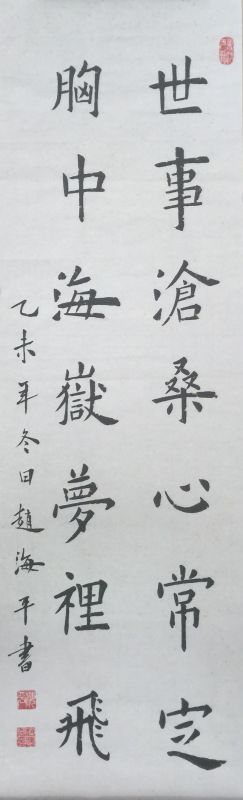 世事滄桑心常定
胸中海嶽夢裡飛
乙未年冬日趙海平書